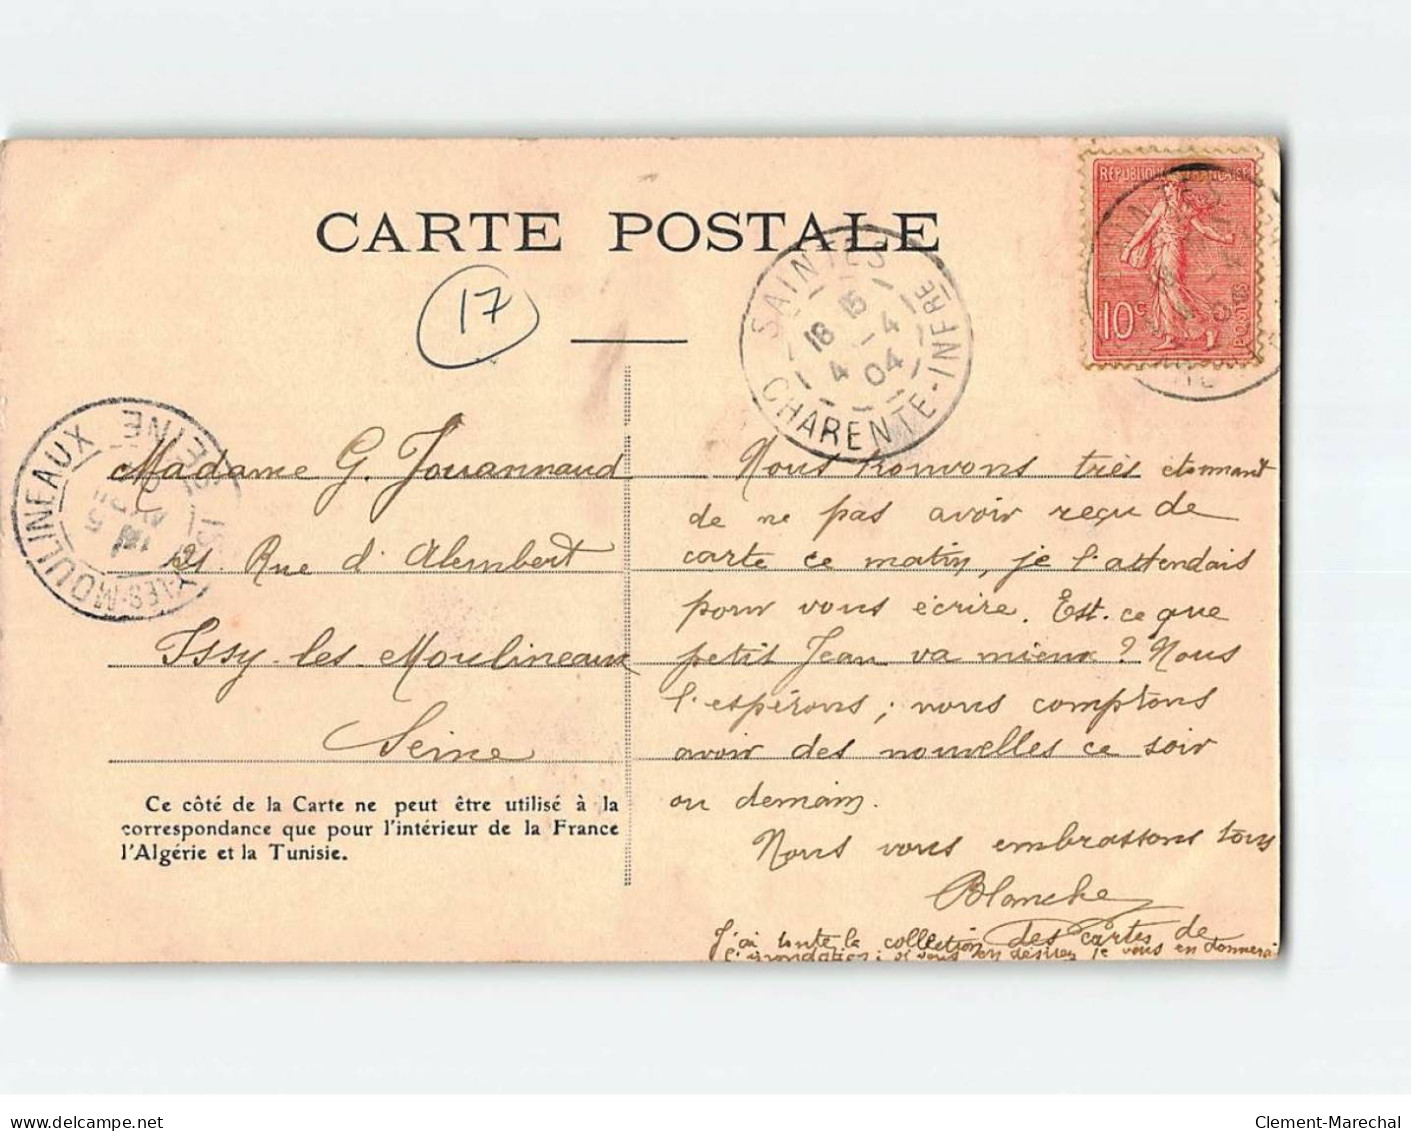 CARTE POSTALE
17
SAINTES
18 15
4 - 4
04
CHARENTE-INFRE
RÉPUBLIQUE FRANÇAISE
10c
POSTES
Madame G. Jouannaud
21 Rue d'Alembert
Issy-les-Moulineaux
Seine
Ce côté de la Carte ne peut être utilisé à la
correspondance que pour l'intérieur de la France
l'Algérie et la Tunisie.
Nous trouvons très étonnant
de ne pas avoir reçu de
carte ce matin, je l'attendais
pour vous écrire. Est-ce que
petit Jean va mieux ? Nous
l'espérons ; nous comptons
avoir des nouvelles ce soir
ou demain.
Nous vous embrassons tous
Blanche
J'ai toute la collection des cartes de
l'inondation ; si vous en désirez je vous en donnerai
MOULINEAUX
SEINE
delcampe.net
Clement-Marechal